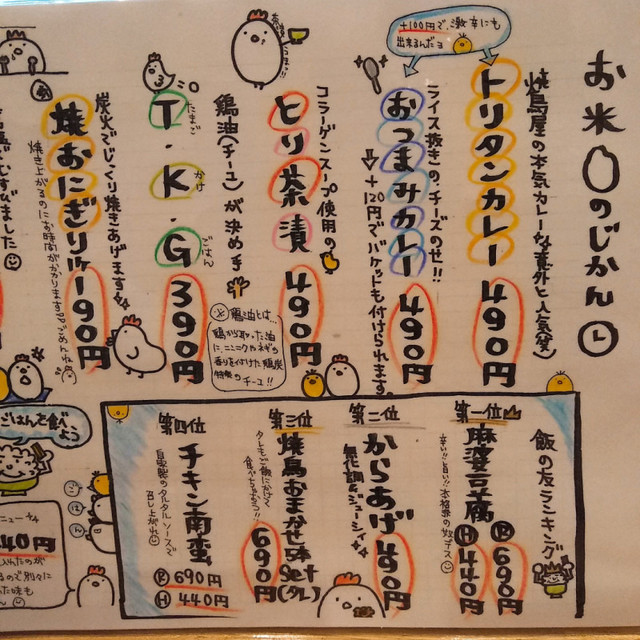 お米のじかん
+100円で、激辛にも
出来るんだョ
焼鳥屋の本気カレーなぜ意外と人気(笑)
トリタンカレー 490円
ライス抜きの、チーズのせ!!
おつまみカレー 490円
+120円でバゲットも付けられます。
コラーゲンスープ使用の
とり茶漬 490円
鶏油(チーユ)が決め手
※鶏油とは…
鶏から取った油
に、ニンニクやネギの
香りを付けた鶏炭
特製のチーユ!!
T・K・G 390円
たまご
かけ
ごはん
炭火でじっくり焼きあげます
焼おにぎり 190円
焼き上がるのにお時間がかかります
すびました
飯の友ランキング
第一位
麻婆豆腐
辛い!!旨い!!本格派の
R 690円
H 440円
第二位
からあげ 490円
無化調&ジューシィ
第三位
焼鳥おまかせ5本set(タレ) 690円
タレもご飯にかけて
食べちゃう
第四位
チキン南蛮
自家製のタルタルソースで
召し上がれ
R 690円
H 440円
ごはんを食べ
よう
ごはん
ニュー
40円